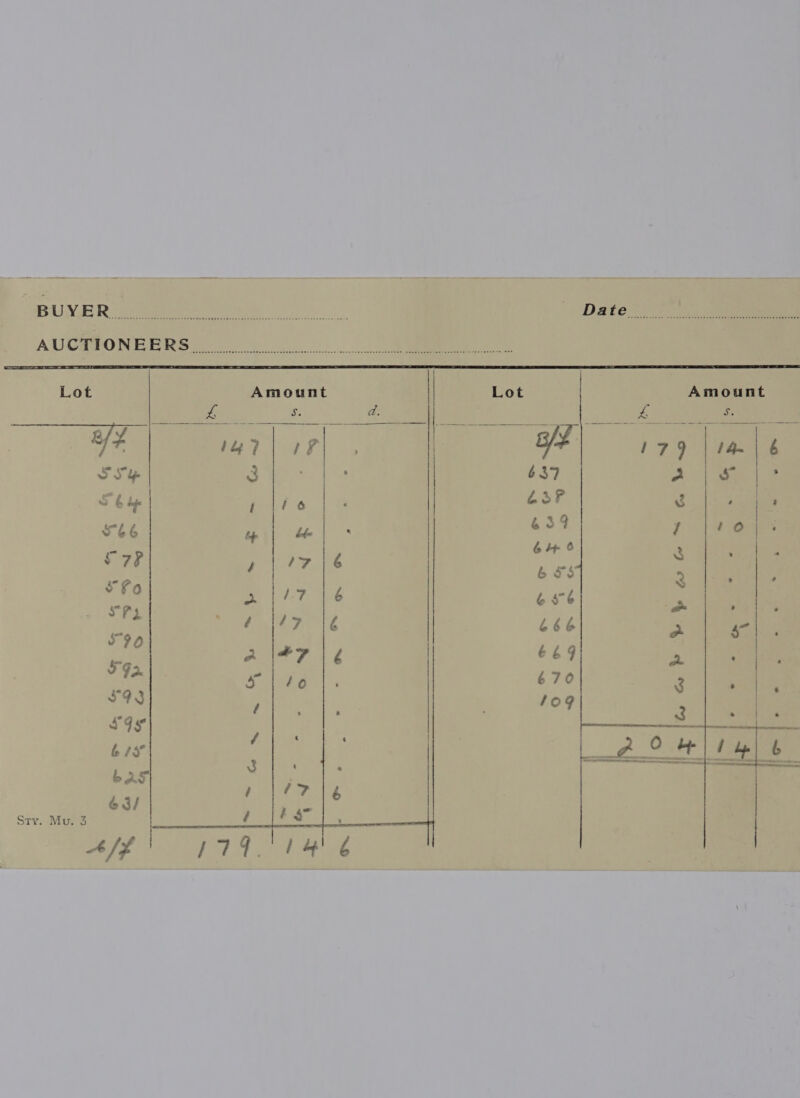 BUYER
Date
AUCTIONEERS
Lot Amount
£ s. d.
B/F 147 18 .
554 3 . .
564 1 10 .
566 4 4 .
578 1 17 6
580 2 17 6
582 1 17 6
590 2 7 6
592 5 10 .
593 1 . .
595 1 . .
615 3 . .
625 1 17 6
631 1 15 .
Sty. Mu. 3
C/F 179. 14 6
Lot Amount
£ s.
B/F 179 14 6
637 2 5 .
638 3 . .
639 1 10 .
640 3 . .
655 3 . .
656 2 . .
666 2 5 .
669 2 . .
670 3 . .
109 3 . .
204 14 6